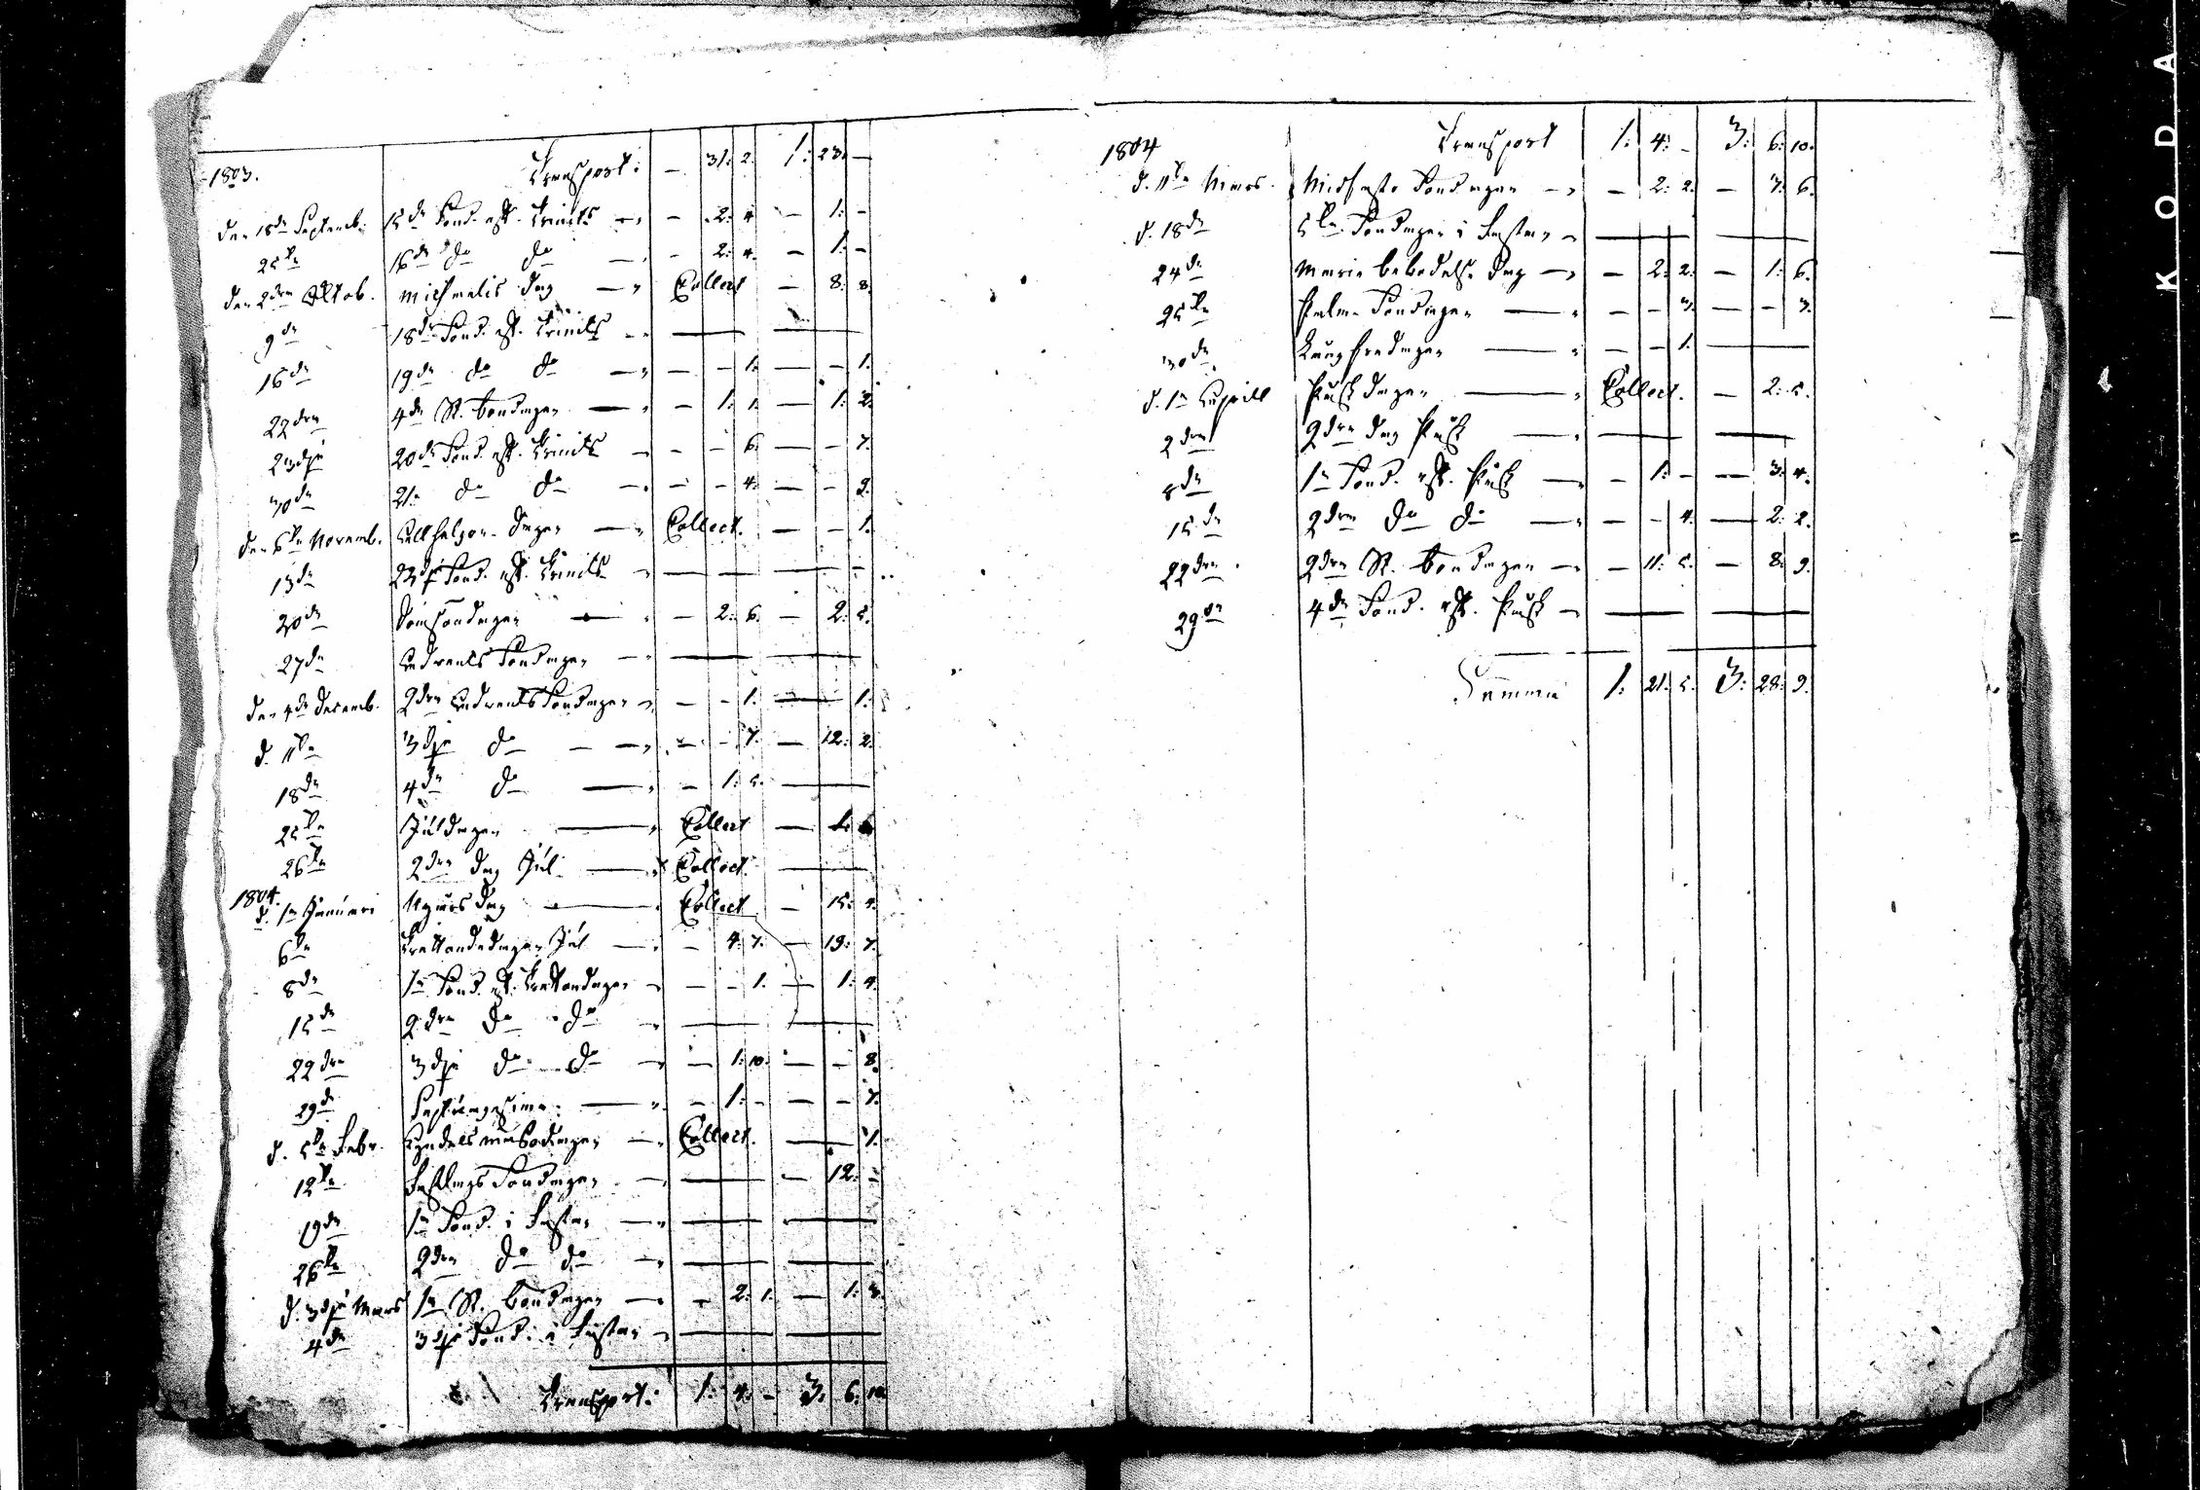 1803. Transport: — 31: 2. 1: 23: —
den 18de Septemb: 15de Sönd. eft. Trinit: — — 2: 4 — 1: —
25te 16de do do — — 2: 4. — 1: —
den 2dra Oktob. Michaelis Dag — Collect — 8: 8.
9de 18de Sönd. eft. Trinit: — — —
16de 19de do do — — — 1: — — 1.
22dra 4de St. Böndagen — — 1: 1. — 1: 2.
23dje 20de Sönd. eft. Trinit: — — — 6. — — 7.
30de 21a do do — — — 4. — — 9.
den 6te Novemb. Allhelgona Dagen — Collect. — — 1.
13de 23dje Sönd. eft. Trinit: — — —
20de Domsöndagen — — 2: 6. — 2: 5.
27de Advents Söndagen — — —
den 4de Decemb. 2dra Advents Söndagen — — — 1. — — 1:
d. 11te 3dje do — — — 7. — 12: 2.
18de 4de do — — 1: 5. —
25te Juldagen — Collect —
26te 2dra Dag Jul — Collect. —
1804.
d. 1a Januari Nyårs Dag — Collect — 15: 4.
6te Trettondedagen Jul — — 4: 7. — 19: 7.
8de 1a Sönd. eft. Trettondagen — — — 1. — 1: 4.
15de 2dra do do — — —
22dra 3dje do do — — 1: 10. — — 8.
29de Septuagesima — — 1: — — — 7.
d. 5te Febr. Kyndelsmässodagen — Collect. — — 1.
12te Fastlags Söndagen — — — 12: —
19de 1a Sönd. i Fastan — — —
26te 2dra do do — — —
d. 3dje Mars 1a St. Böndagen — — 2: 1. — 1: 3.
4de 3dje Sönd. i Fastan — — —
Transport: 1: 4: — 3: 6: 10.
1804 Transport 1: 4: — 3: 6: 10.
d. 11te Mars. Midfasto Söndagen — — 2: 2. — 3: 6.
d. 18de 5te Söndagen i Fastan — — —
24de Marie bebådelse Dag — — 2: 2. — 1: 6.
25te Palm-Söndagen — — — 3. — — 3.
30de Långfredagen — — — 1. —
d. 1a Aprill Påsk Dagen — Collect. — 2: 5.
2dra 2dra Dag Påsk — — —
8de 1a Sönd. eft. Påsk — — 1: — — 3: 4.
15de 2dra do do — — — 4. — 2: 2.
22dra 2dra St. Böndagen — — 11: 5. — 8: 9.
29de 4de Sönd. eft. Påsk — — —
Summa 1: 21: 5. 3: 28: 9.
KODA